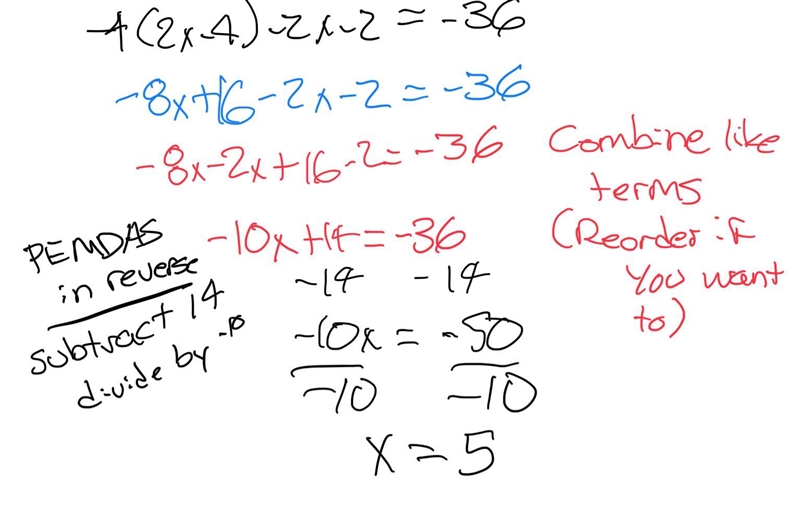 -4(2x-4)-2x-2=-36
-8x+16-2x-2=-36
-8x-2x+16-2=-36
Combine like
terms
(Reorder if
You want
to)
-10x+14=-36
-14 -14
-10x = -50
-10 -10
x=5
PEMDAS
in reverse
subtract 14
divide by -10